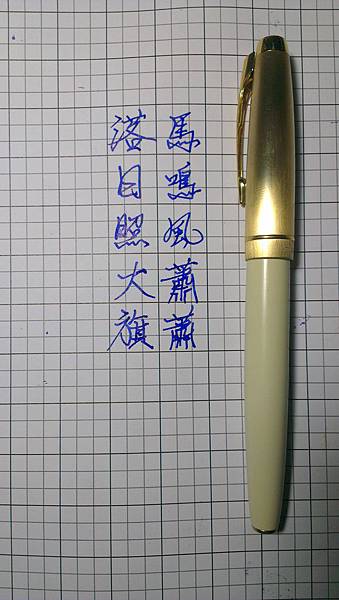 落日照大旗
馬鳴風蕭蕭